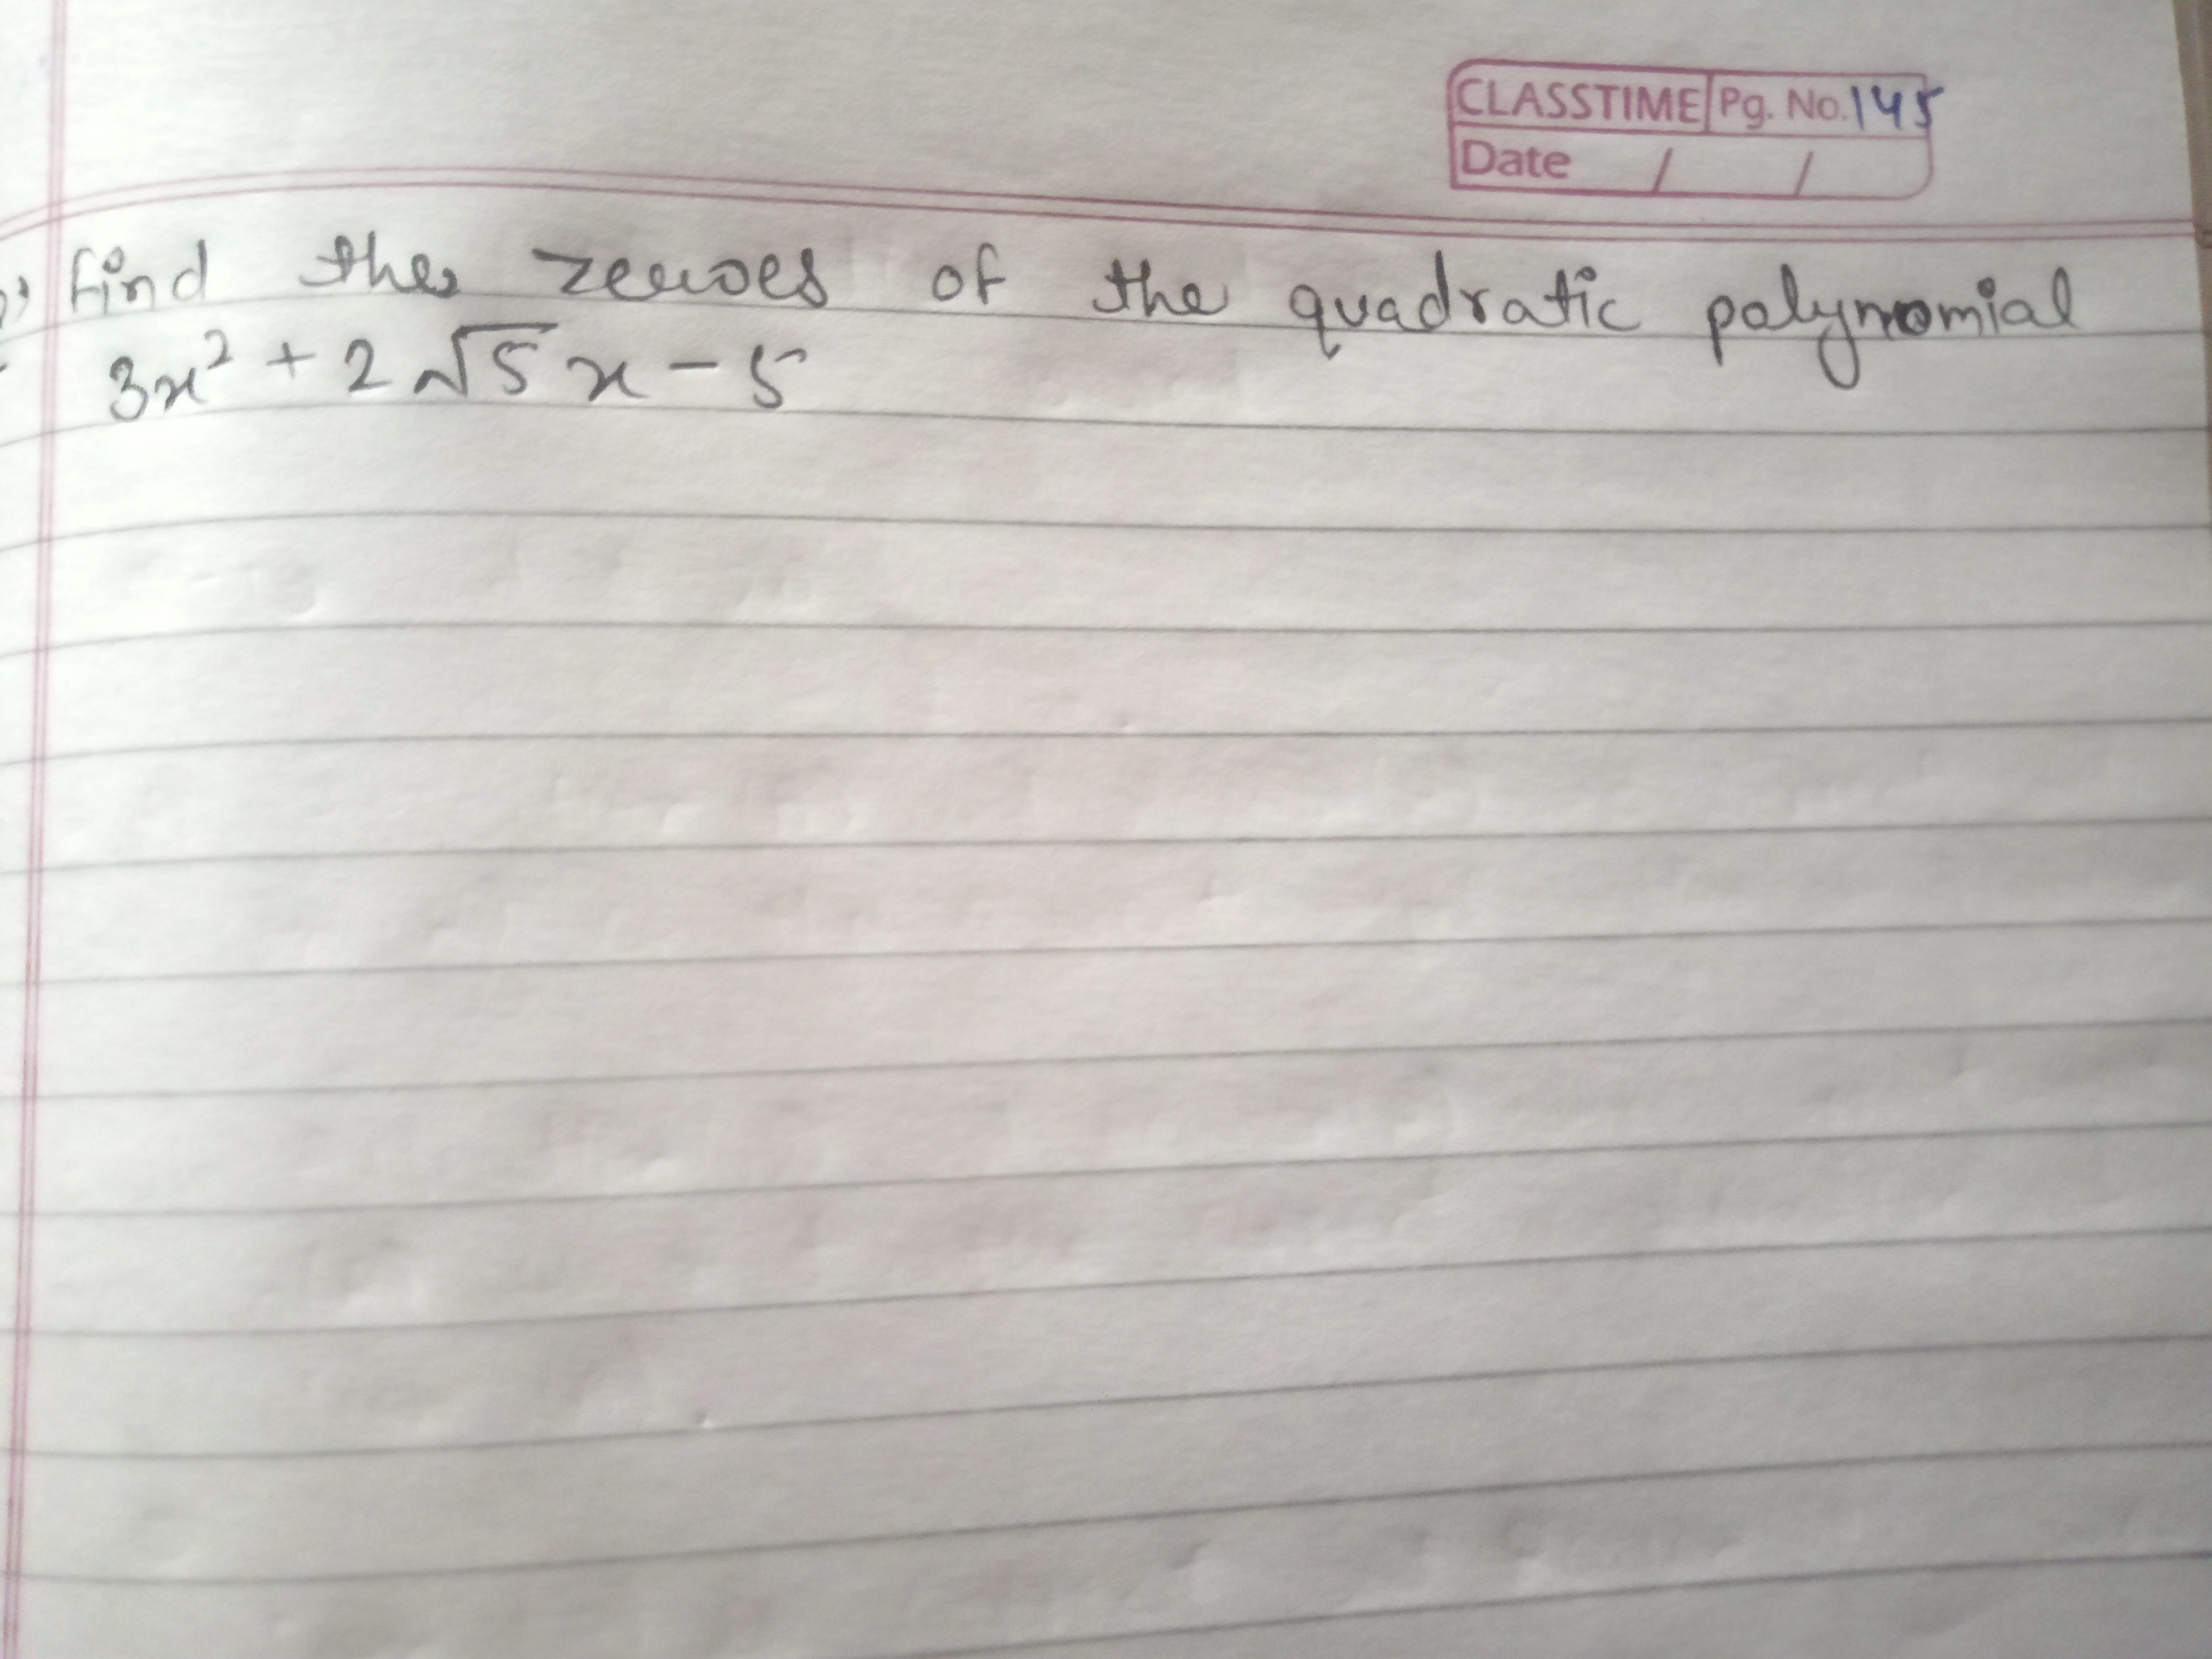 CLASSTIME Pg. No. 145
Date / /
find the zeroes of the quadratic polynomial
3x² + 2√5x - 5